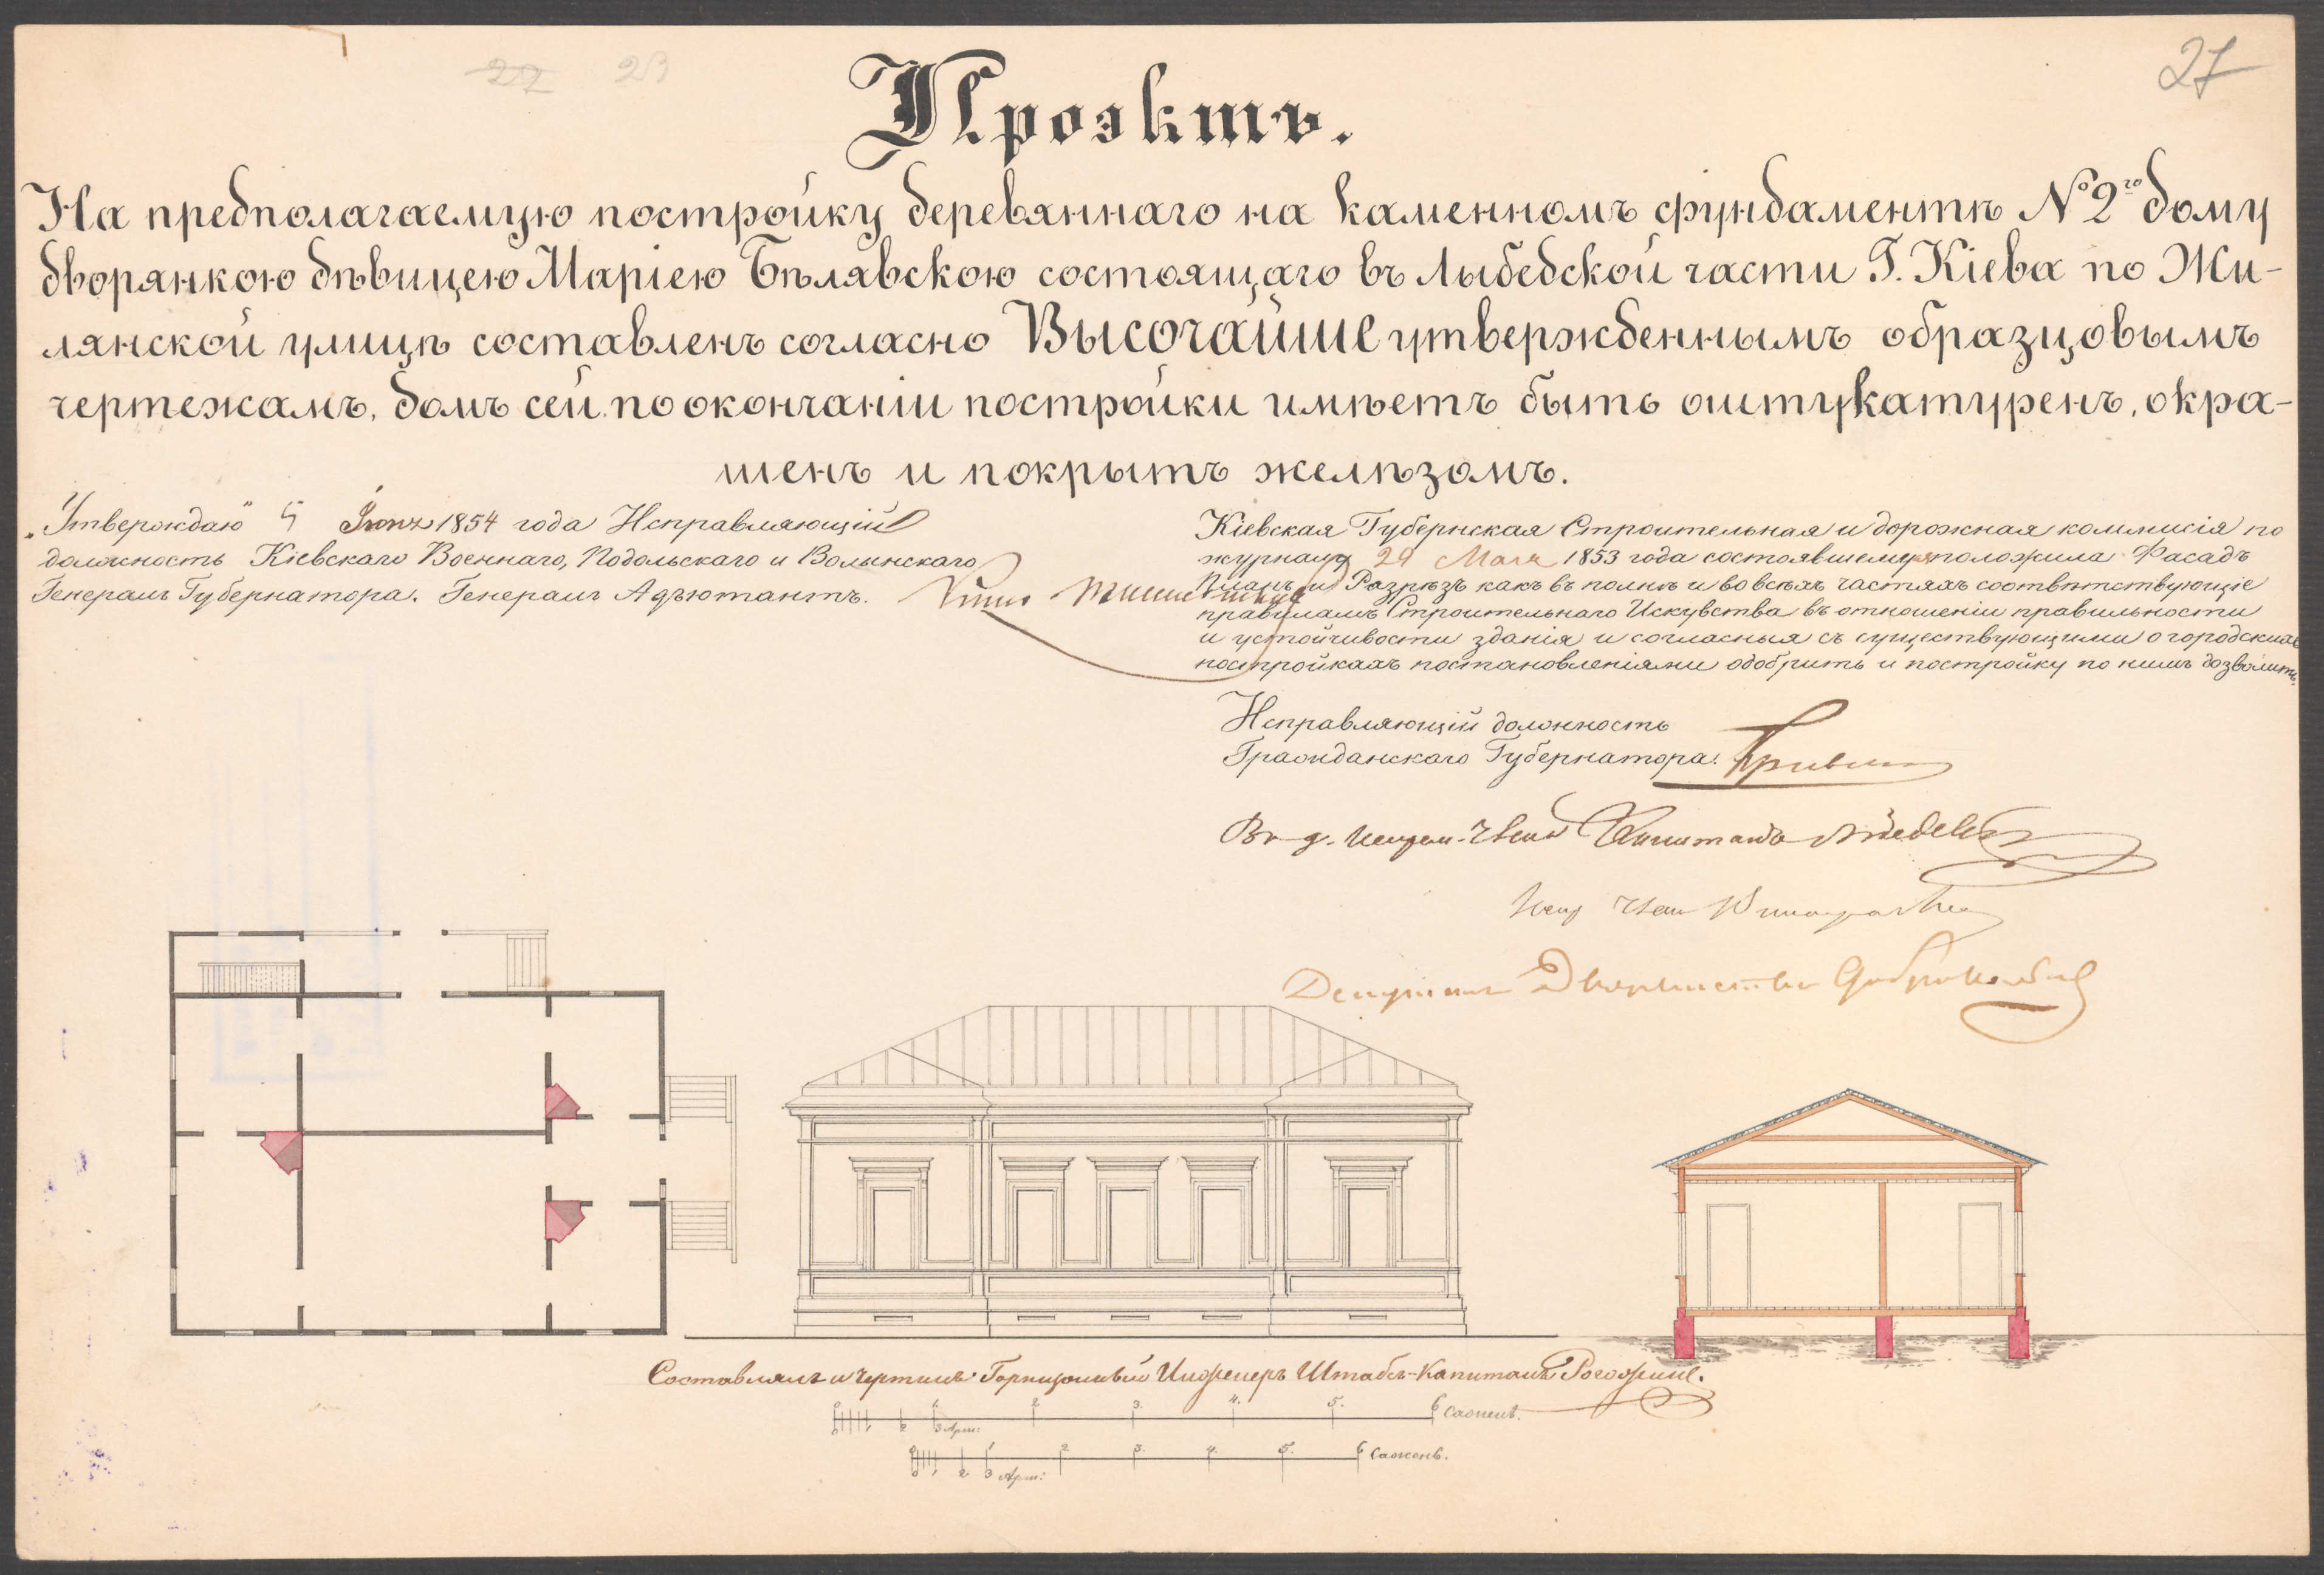 27 23
27
Проэктъ.
На предполагаемую постройку деревяннаго на каменномъ фундаментѣ №2го дому
дворянкою дѣвицею Маріею Бѣлявскою состоящаго въ Лыбедской части Г. Кіева по Жи-
лянской улицѣ составленъ согласно Высочайше утвержденнымъ образцовымъ
чертежамъ, домъ сей по окончаніи постройки имѣетъ быть оштукатуренъ, окра-
шенъ и покрытъ желѣзомъ.
„Утверждаю" 5 1854 года Исправляющій
должность Кіевскаго Военнаго, Подольскаго и Волынскаго
Генералъ Губернатора. Генералъ Адъютантъ.
Кіевская Губернская Строительная и дорожная коммисія по
журналу 29 Мая 1853 года состоявшемуся положила Фасадъ
Планъ и Разрѣзъ какъ въ полнѣ и во всѣхъ частяхъ соотвѣтствующіе
правиламъ Строительнаго Искувства въ отношеніи правильности
и устойчивости зданія и согласныя съ существующими о городскихъ
постройкахъ постановленіями одобрить и постройку по нимъ дозволить.
Исправляющій должность
Гражданскаго Губернатора.
Капитанъ
Депутатъ Дворянства
Составлялъ и Чертилъ Горнизонный Инженеръ Штабсъ-Капитанъ Рогожинъ.
0 1. 2 3. 4. 5. 6 Сажень.
0 1 2 3 Арш:
0 1 2 3. 4. 5. 6 Сажень.
0 1 2 3 Арш: